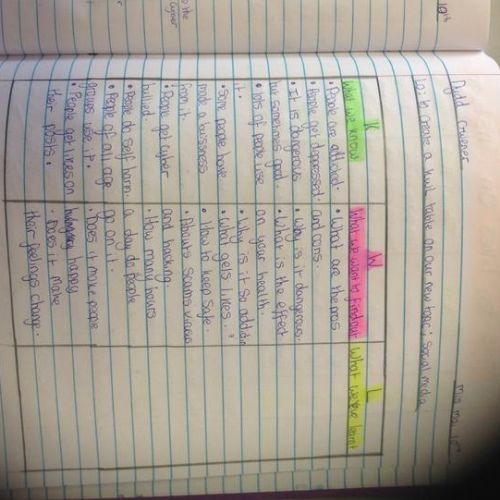 May 15
Lo: to create a kwl table on our new topic: social media
K
What we know
• People are addicted.
• People get depressed.
• It is dangerous
but sometimes good.
• lots of people use
it.
• Some people have
made a business
from it
• People get cyber
bullied
• People do self harm.
• People of all age
groups use it.
• People get likes on
their posts.
W
What we want to find out
• What are the pros
and cons.
• Why is it dangerous.
• What is the effect
on your health.
• Why is it so
• What gets likes.
• How to keep safe.
• Abouts scams
and hacking.
• How many hours
a day do people
go on it.
• Does it make people
happy
• Does it make
their feelings change.
L
What we've learnt